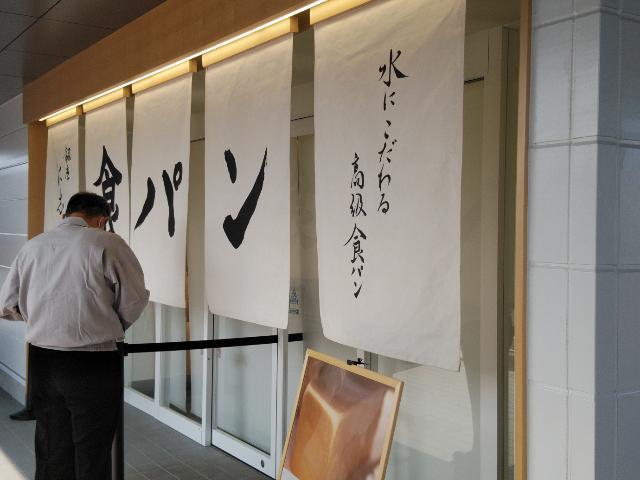 食パン
水にこだわる
高級食パン
銀座